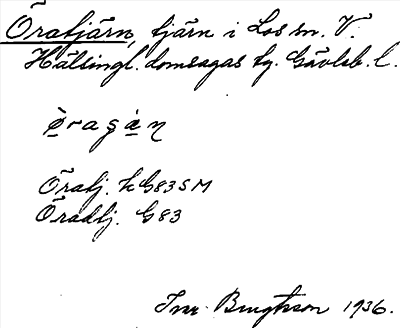 Öratjärn, tjärn i Los sn. V.
Hälsingl. domsagas tg. Gävleb. l.
òragàn
Öratj. h G83SM
Öradtj. G83
Ivar Bengtsson 1936.